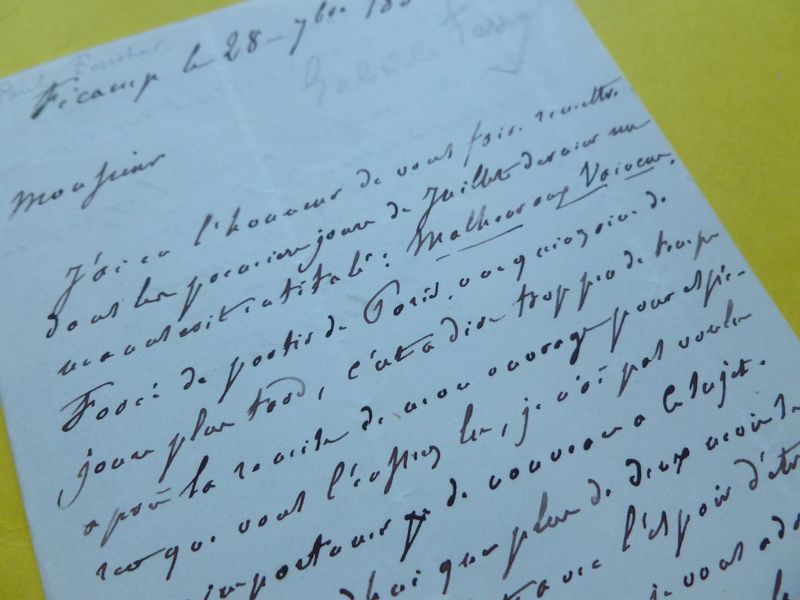 Fécamp le 28 - 7bre 18
Monsieur
J'ai eu l'honneur de vous faire remettre
dans les premiers jours de Juillet dernier un
manuscrit intitulé : Malheur aux Vaincus.
Forcé de partir de Paris, une quinzaine de
jours plus tard, c'est a dire trop peu de temps
après la remise de mon ouvrage pour espé-
rer que vous l'eussiez lu, je n'ai pas voulu
importuner de nouveau a ce sujet.
hui que plus de deux mois
avec l'espoir d'être
je vous